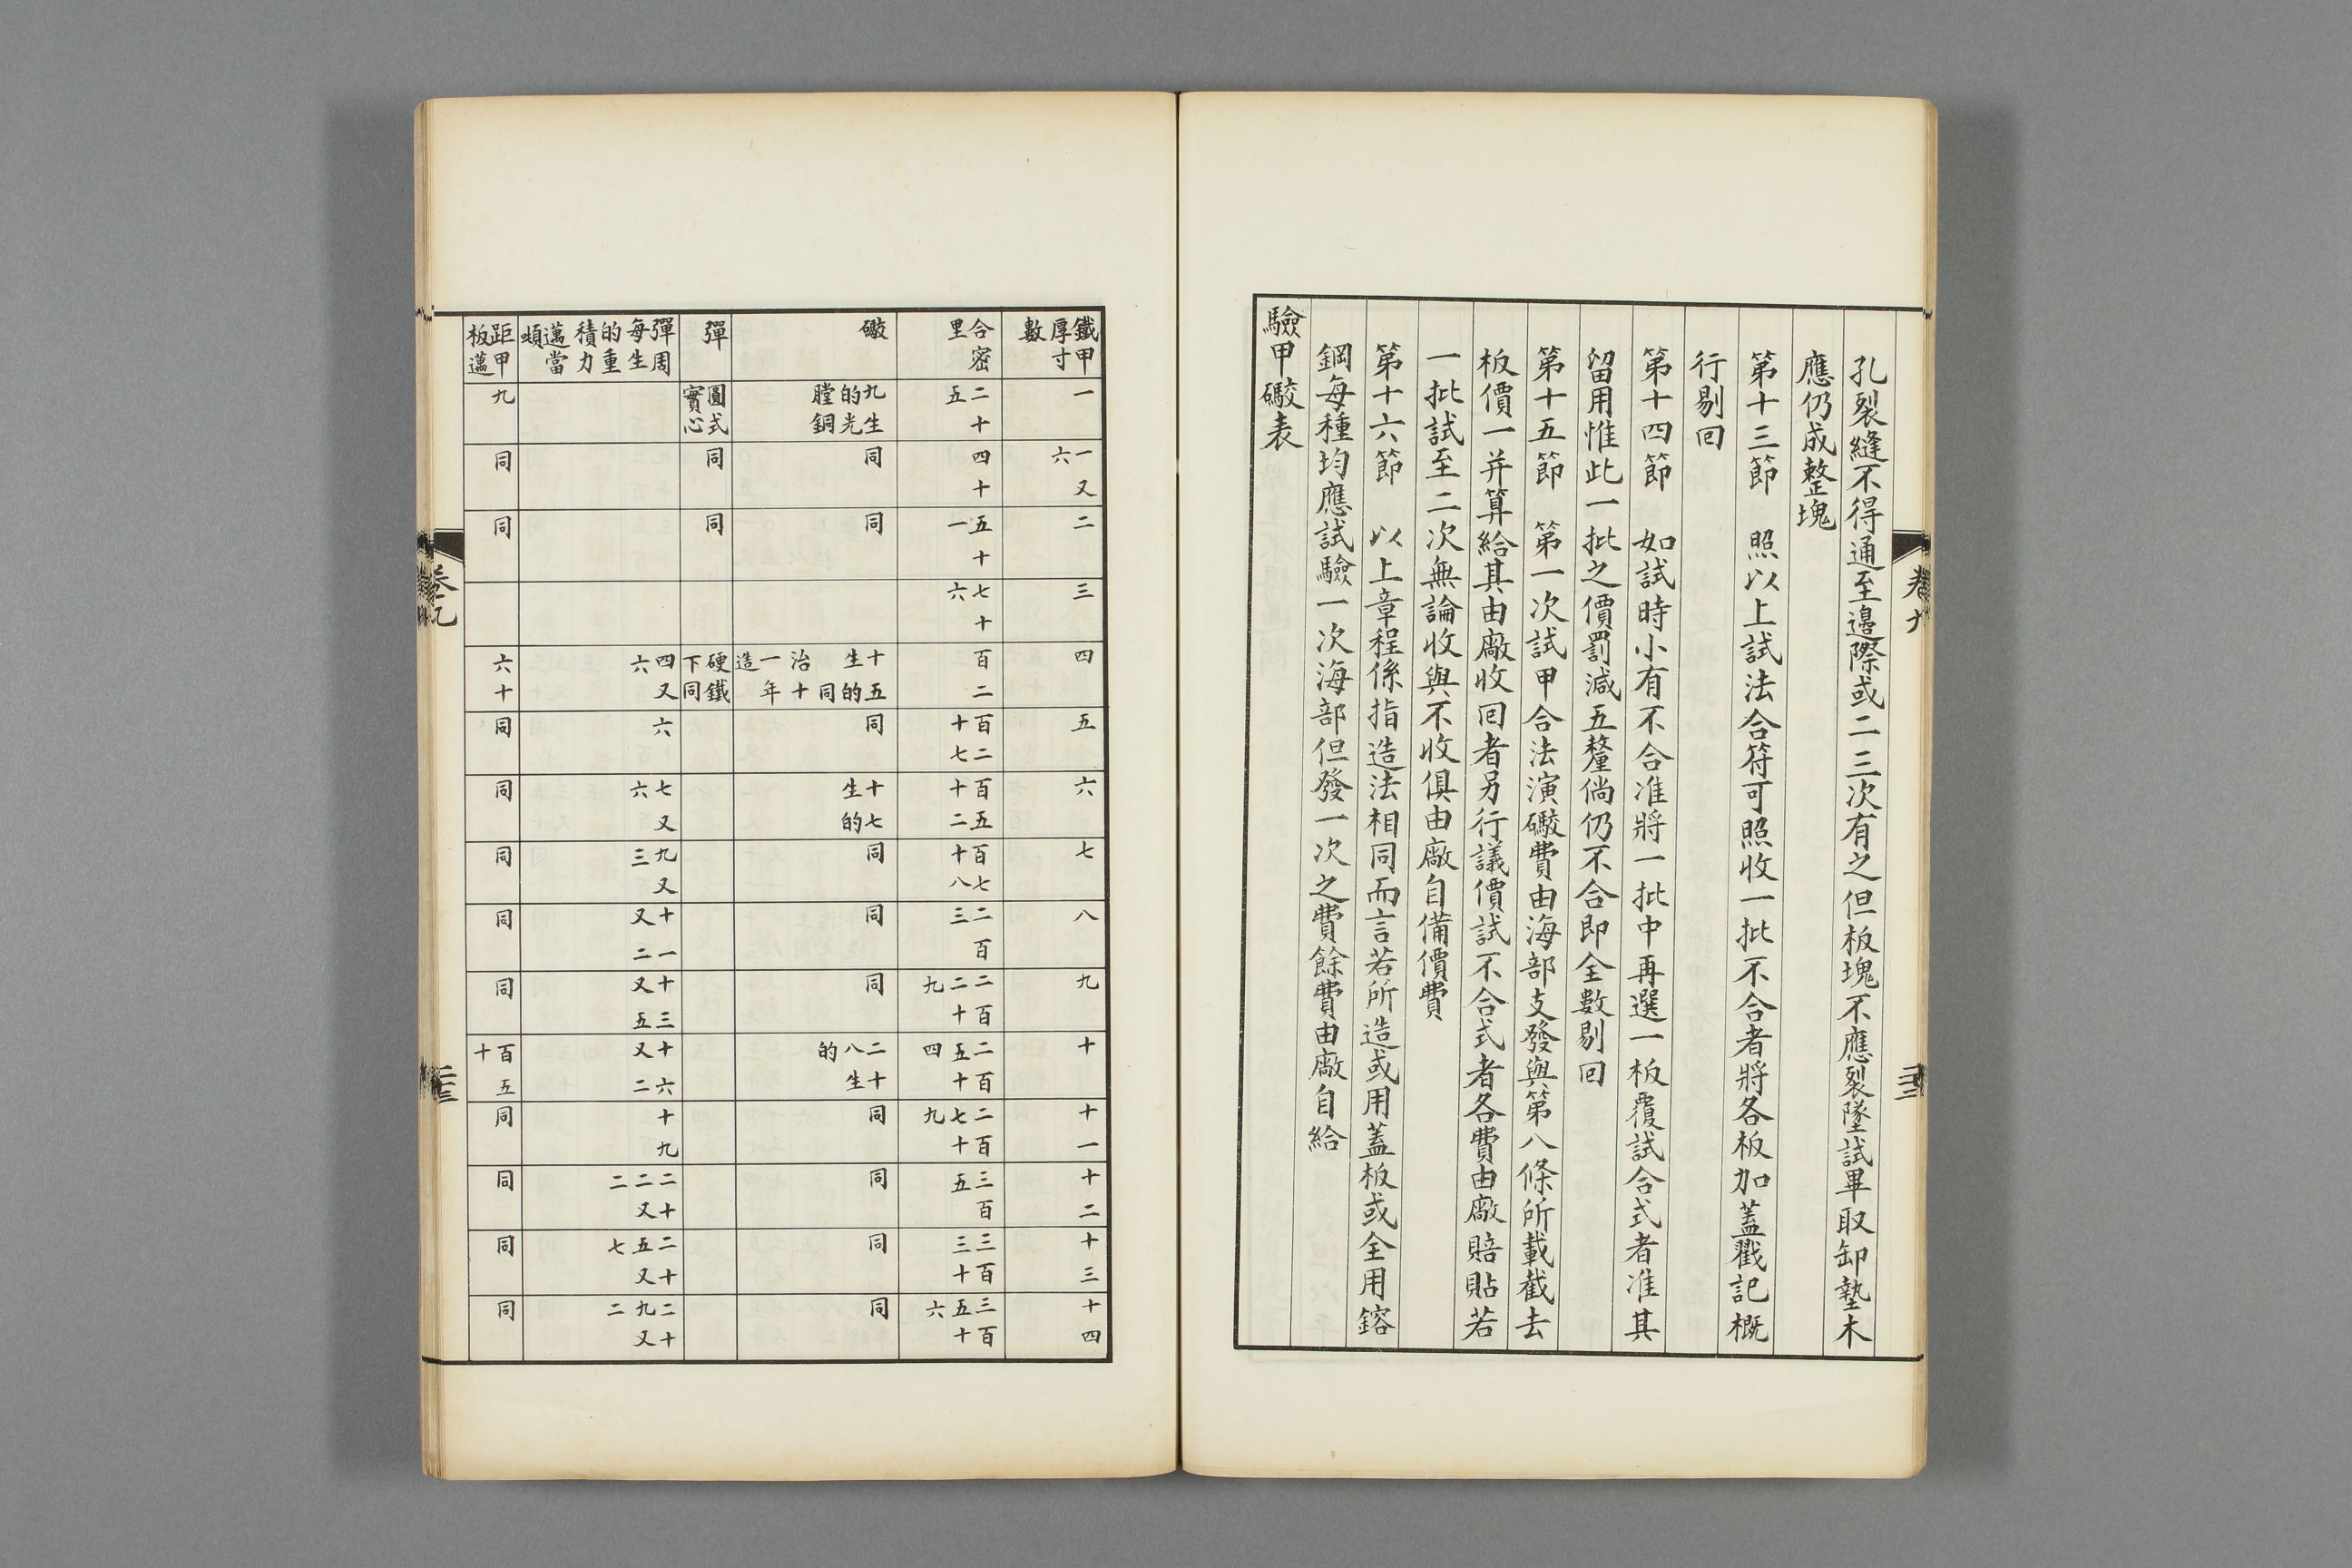 孔裂縫不得通至邊際或二三次有之但板塊不應裂墜試畢取卸墊木
應仍成整塊
第十三節　照以上試法合符可照收一批不合者將各板加蓋戳記概
行剔回
第十四節　如試時小有不合准將一批中再選一板覆試合式者准其
留用惟此一批之價罰減五釐倘仍不合即全數剔回
第十五節　第一次試甲合法演礮費由海部支發與第八條所載截去
板價一并算給其由廠收回者另行議價試不合式者各費由廠賠貼若
一批試至二次無論收與不收俱由廠自備價費
第十六節　以上章程係指造法相同而言若所造或用蓋板或全用鎔
鋼每種均應試驗一次海部但發一次之費餘費由廠自給
驗甲礮表
卷九
鐵甲厚寸數　一　一又六　二　三　四　五　六　七　八　九　十　十一　十二　十三　十四
合密里　二十五　四十　五十一　七十六　百二　百二十七　百五十二　百七十八　二百三　二百二十九　二百五十四　二百七十九　三百五　三百三十　三百五十六
礮　九生的光膛銅　同　同　十五生的同治十一年造　同　十七生的　同　同　同　二十八生的　同　同　同　同
彈　圓式實心　同　同　硬鐵下同
彈周每生的重積力邁當噸　四又六　六　七又六　九又三　十一又二　十三又五　十六又二　十九　二十二又二　二十五又七　二十九又二
距甲板邁　九　同　同　六十　同　同　同　同　同　百五十　同　同　同　同
卷九